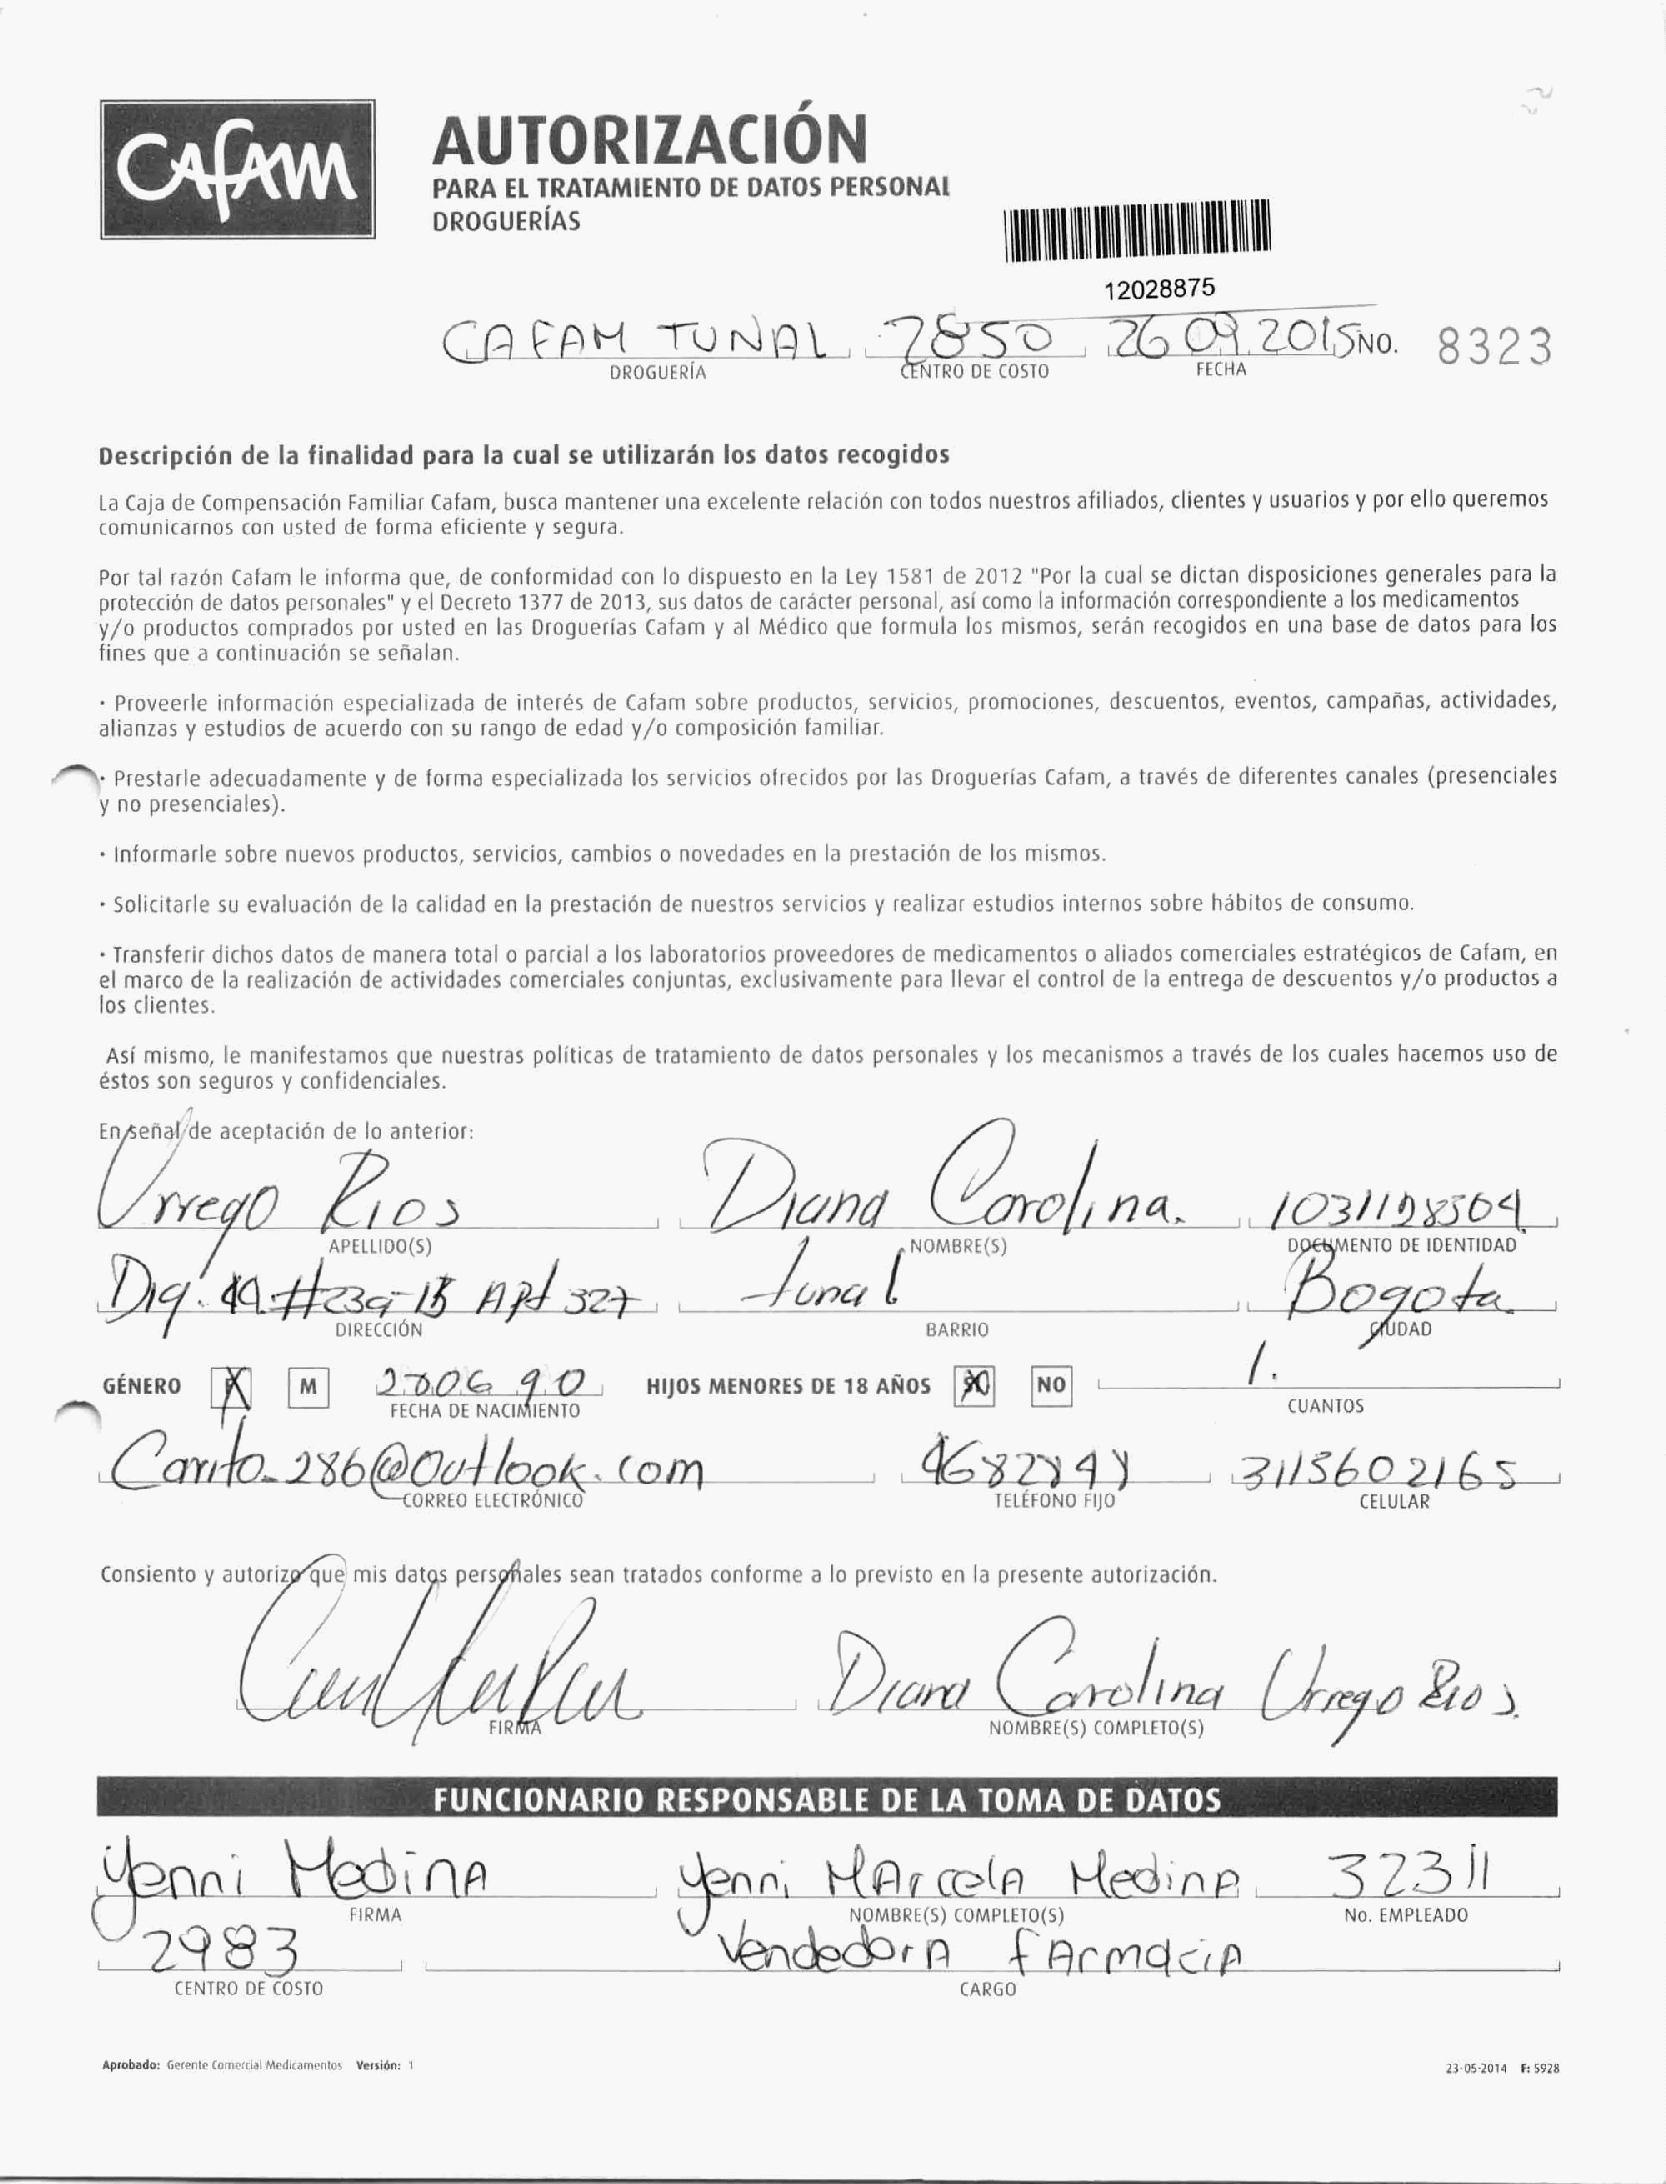 Cafam
AUTORIZACIÓN
PARA EL TRATAMIENTO DE DATOS PERSONAL
DROGUERÍAS
12028875
CAFAM TUNAL 2850 26 09 2015 NO. 8323
DROGUERÍA CENTRO DE COSTO FECHA
Descripción de la finalidad para la cual se utilizarán los datos recogidos
La Caja de Compensación Familiar Cafam, busca mantener una excelente relación con todos nuestros afiliados, clientes y usuarios y por ello queremos
comunicarnos con usted de forma eficiente y segura.
Por tal razón Cafam le informa que, de conformidad con lo dispuesto en la Ley 1581 de 2012 "Por la cual se dictan disposiciones generales para la
protección de datos personales" y el Decreto 1377 de 2013, sus datos de carácter personal, así como la información correspondiente a los medicamentos
y/o productos comprados por usted en las Droguerías Cafam y al Médico que formula los mismos, serán recogidos en una base de datos para los
fines que a continuación se señalan.
· Proveerle información especializada de interés de Cafam sobre productos, servicios, promociones, descuentos, eventos, campañas, actividades,
alianzas y estudios de acuerdo con su rango de edad y/o composición familiar.
· Prestarle adecuadamente y de forma especializada los servicios ofrecidos por las Droguerías Cafam, a través de diferentes canales (presenciales
y no presenciales).
· Informarle sobre nuevos productos, servicios, cambios o novedades en la prestación de los mismos.
· Solicitarle su evaluación de la calidad en la prestación de nuestros servicios y realizar estudios internos sobre hábitos de consumo.
· Transferir dichos datos de manera total o parcial a los laboratorios proveedores de medicamentos o aliados comerciales estratégicos de Cafam, en
el marco de la realización de actividades comerciales conjuntas, exclusivamente para llevar el control de la entrega de descuentos y/o productos a
los clientes.
Así mismo, le manifestamos que nuestras políticas de tratamiento de datos personales y los mecanismos a través de los cuales hacemos uso de
éstos son seguros y confidenciales.
En señal de aceptación de lo anterior:
Urrego Rios Diana Carolina. 1031128564
APELLIDO(S) NOMBRE(S) DOCUMENTO DE IDENTIDAD
Apt 327 tunal Bogota
DIRECCIÓN BARRIO CIUDAD
GÉNERO X M 280690 HIJOS MENORES DE 18 AÑOS X NO 1.
FECHA DE NACIMIENTO CUANTOS
Carito-286@outlook.com 3115602165
CORREO ELECTRÓNICO TELÉFONO FIJO CELULAR
Consiento y autorizo que mis datos personales sean tratados conforme a lo previsto en la presente autorización.
Diana Carolina Urrego Rios.
FIRMA NOMBRE(S) COMPLETO(S)
FUNCIONARIO RESPONSABLE DE LA TOMA DE DATOS
Yenni Medina Yenni Marcela Medina 32311
FIRMA NOMBRE(S) COMPLETO(S) No. EMPLEADO
2983 Vendedora farmacia
CENTRO DE COSTO CARGO
Aprobado: Gerente Comercial Medicamentos Versión: 1 23-05-2014 F: 5928